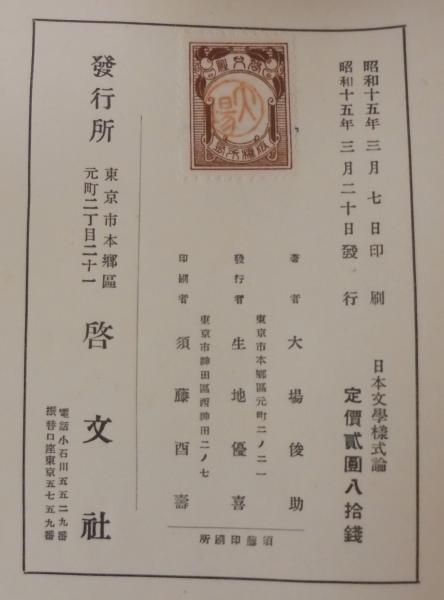 昭和十五年三月七日印刷
昭和十五年三月二十日發行
日本文學樣式論
定價貳圓八拾錢
著者 大場俊助
東京市本鄕區元町二ノ二一
發行者 生地優喜
東京市神田區西神田二ノ七
印刷者 須藤酉壽
須藤印刷所
發行所
東京市本鄕區
元町二丁目二十一
啓文社
電話小石川五五二九番
振替口座東京五七五九番